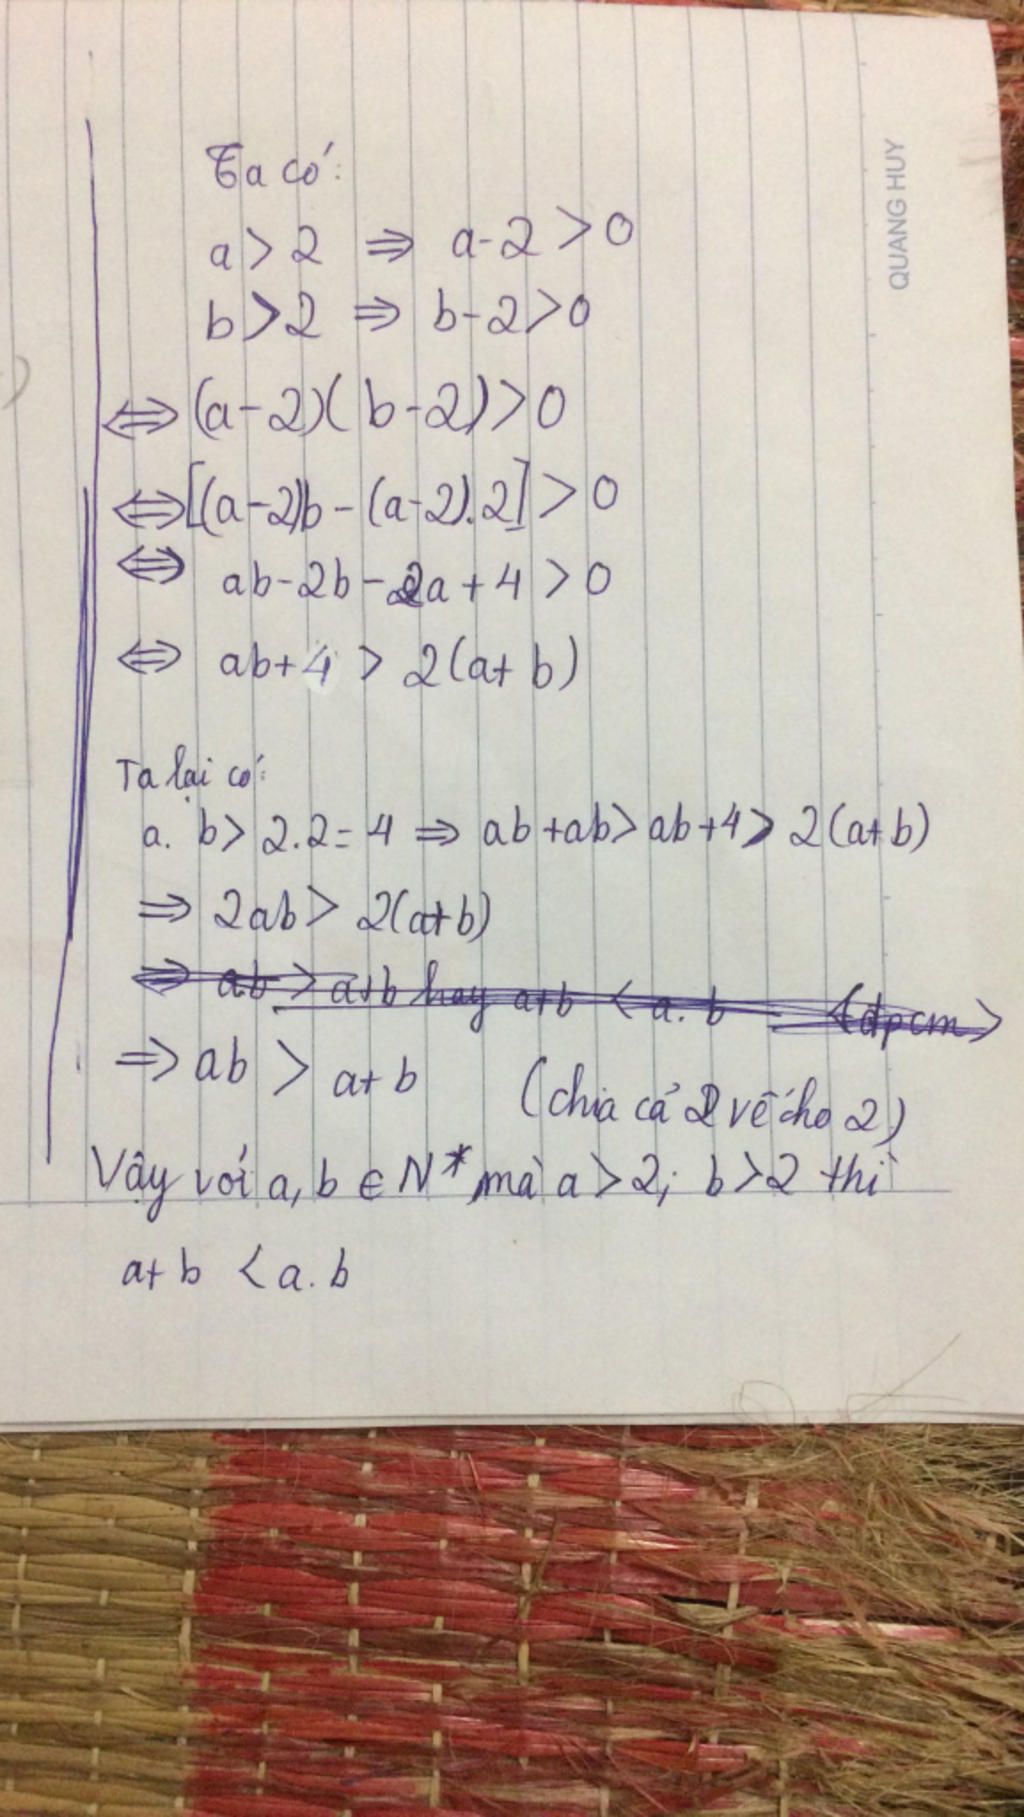 Ta có:
a > 2 ⇒ a-2 > 0
b > 2 ⇒ b-2 > 0
⇔ (a-2)(b-2) > 0
⇔ [(a-2)b - (a-2).2] > 0
⇔ ab-2b-2a+4 > 0
⇔ ab+4 > 2(a+b)
Ta lại có:
a. b > 2.2 = 4 ⇒ ab+ab > ab+4 > 2(a+b)
⇒ 2ab > 2(a+b)
⇔ ab > a+b hay a+b < a.b (đpcm)
⇒ ab > a+b (chia cả 2 vế cho 2)
Vậy với a, b ∈ N* mà a > 2; b > 2 thì
a+b < a.b
QUANG HUY